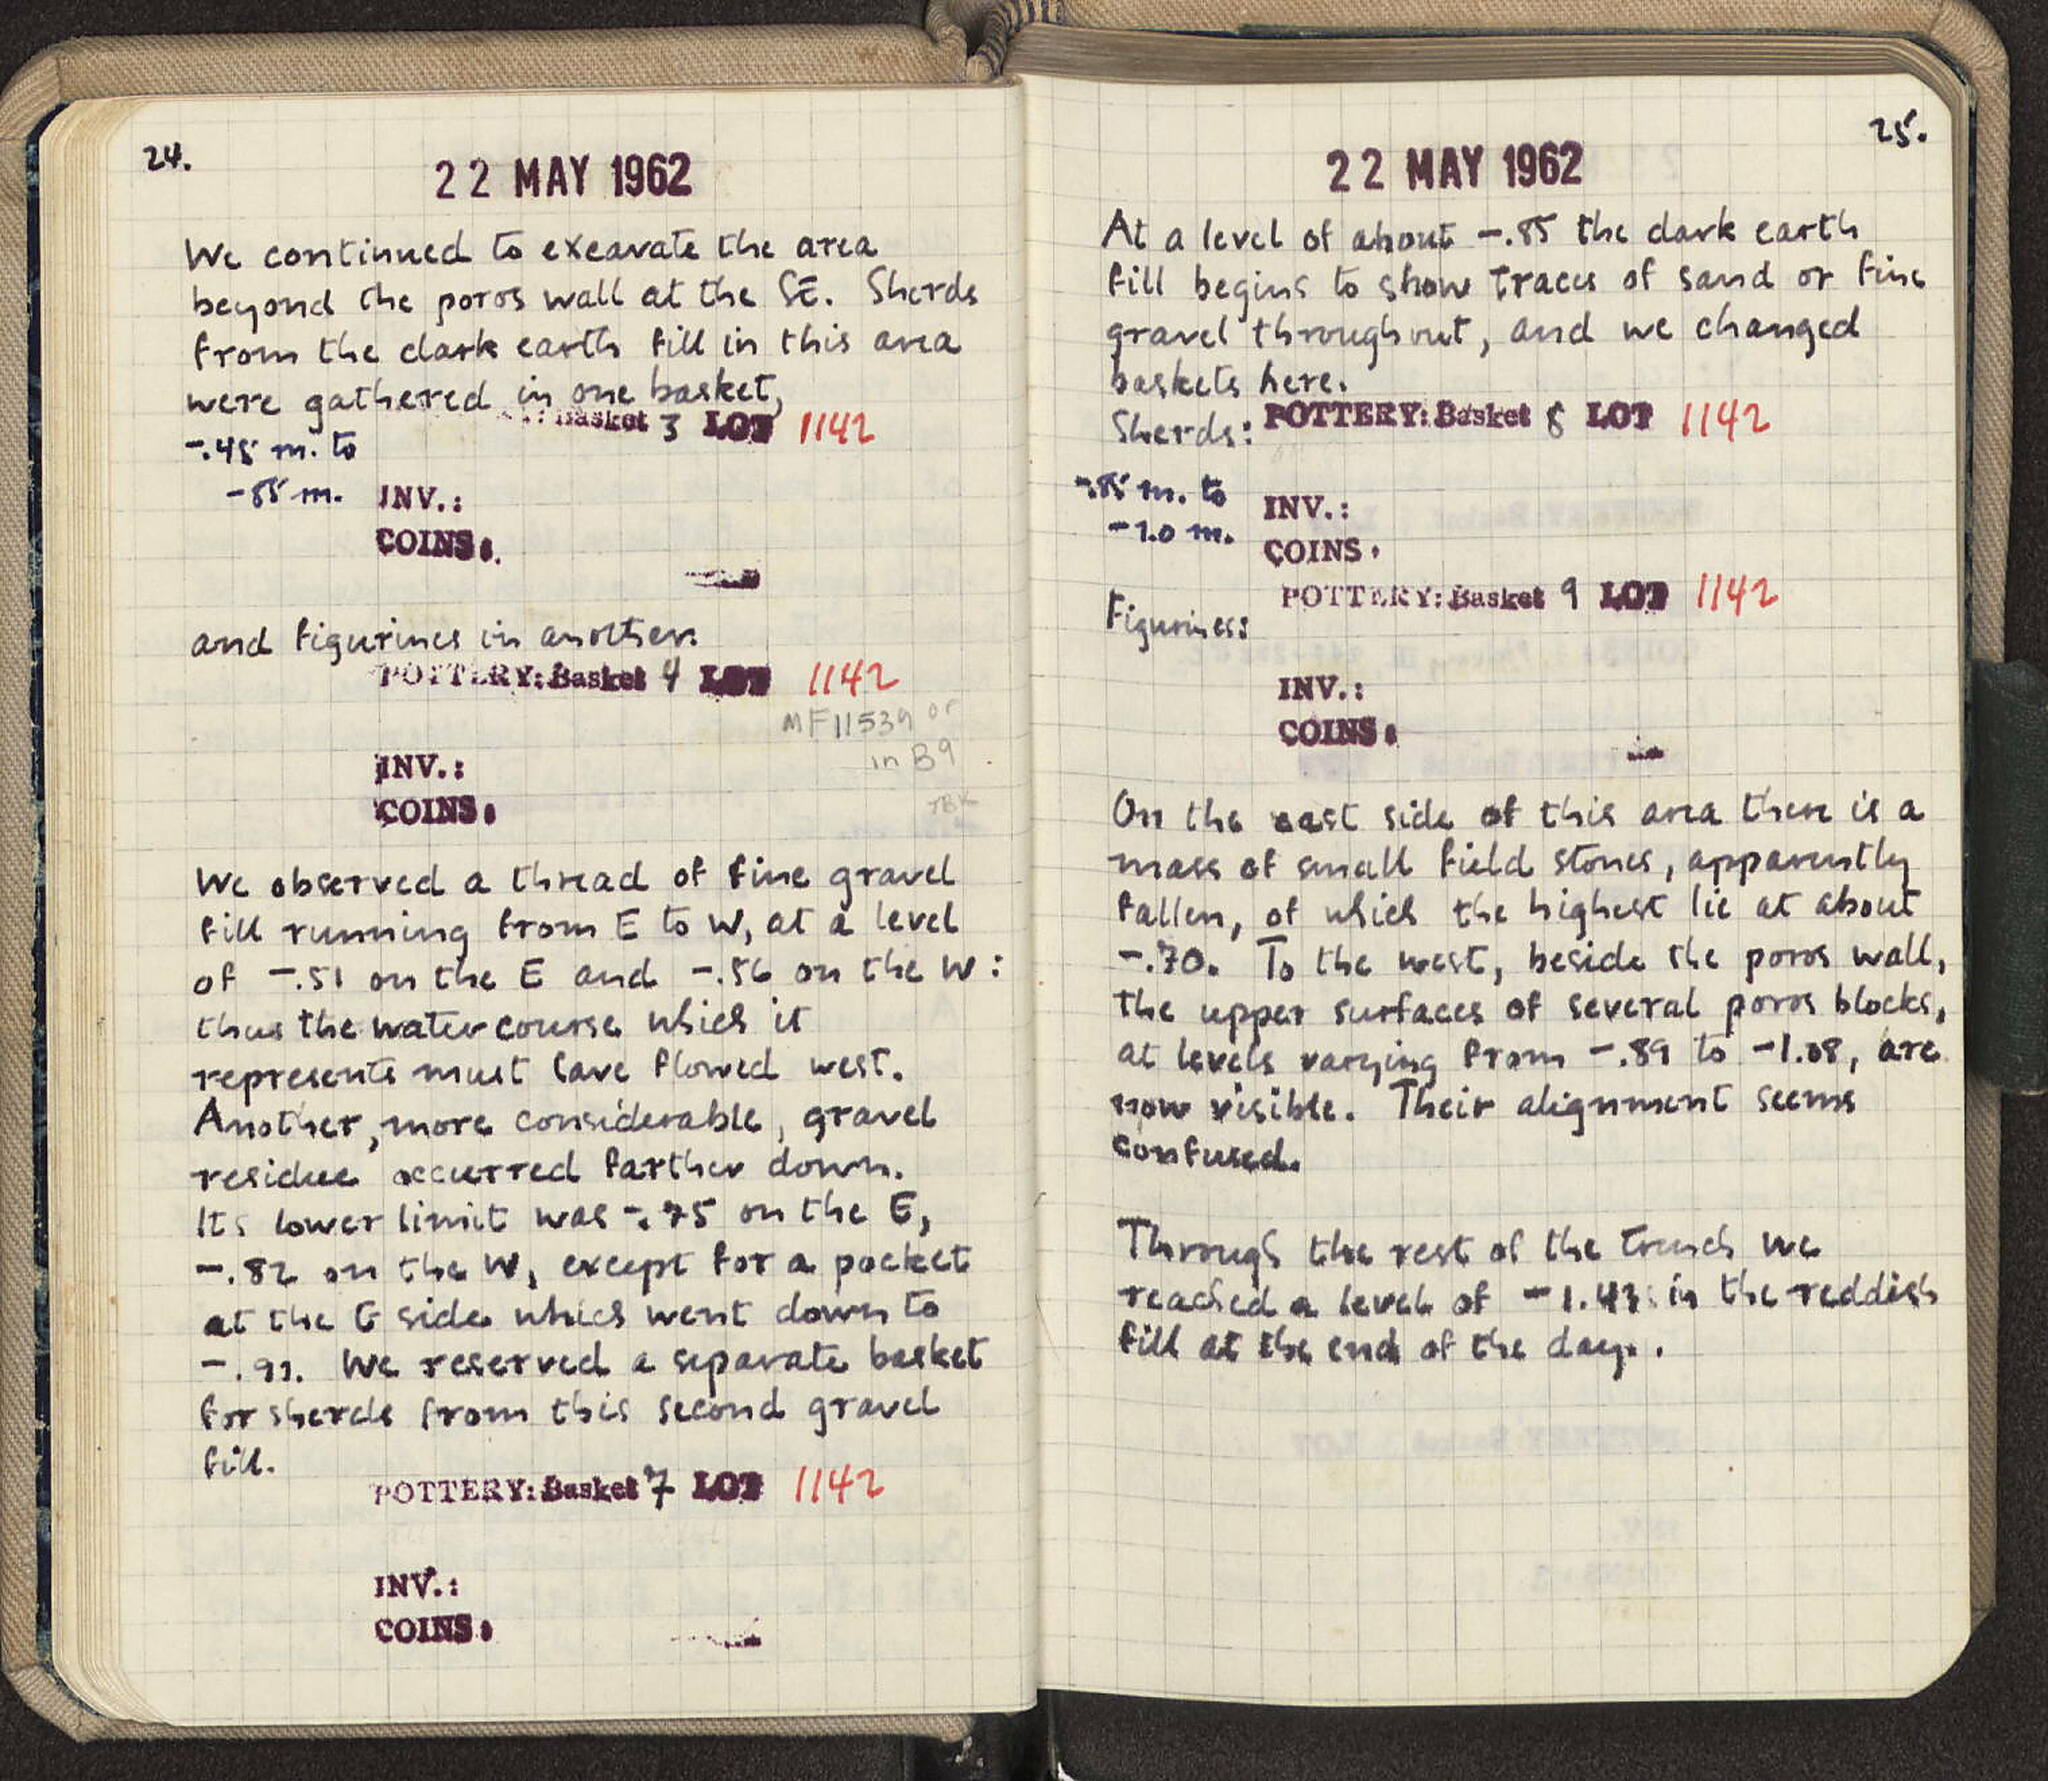 24.
22 MAY 1962
We continued to excavate the area
beyond the poros wall at the SE. Sherds
from the dark earth fill in this area
were gathered in one basket,
Basket 3 LOT 1142
-.45 m. to
-85 m.
INV.:
COINS:
and figurines in another.
POTTERY: Basket 4 LOT 1142
MF11539 or
in B9
INV.:
COINS:
We observed a thread of fine gravel
fill running from E to W, at a level
of -.51 on the E and -.56 on the W:
thus the watercourse which it
represents must have flowed west.
Another, more considerable, gravel
residue occurred farther down.
Its lower limit was -.75 on the E,
-.82 on the W, except for a pocket
at the E side which went down to
We reserved a separate basket
for sherds from this second gravel
fill.
POTTERY: Basket 7 LOT 1142
INV.:
COINS:
25.
22 MAY 1962
At a level of about -.85 the dark earth
fill begins to show traces of sand or fine
gravel throughout, and we changed
baskets here.
Sherds: POTTERY: Basket 8 LOT 1142
-.85 m. to
-1.0 m.
INV.:
COINS:
POTTERY: Basket 9 LOT 1142
Figurines:
INV.:
COINS:
On the east side of this area there is a
mass of small field stones, apparently
fallen, of which the highest lie at about
-.70. To the west, beside the poros wall,
the upper surfaces of several poros blocks,
at levels varying from -.89 to -1.08, are
now visible. Their alignment seems
confused.
Through the rest of the trench we
reached a level of -1.43 in the reddish
fill at the end of the day.